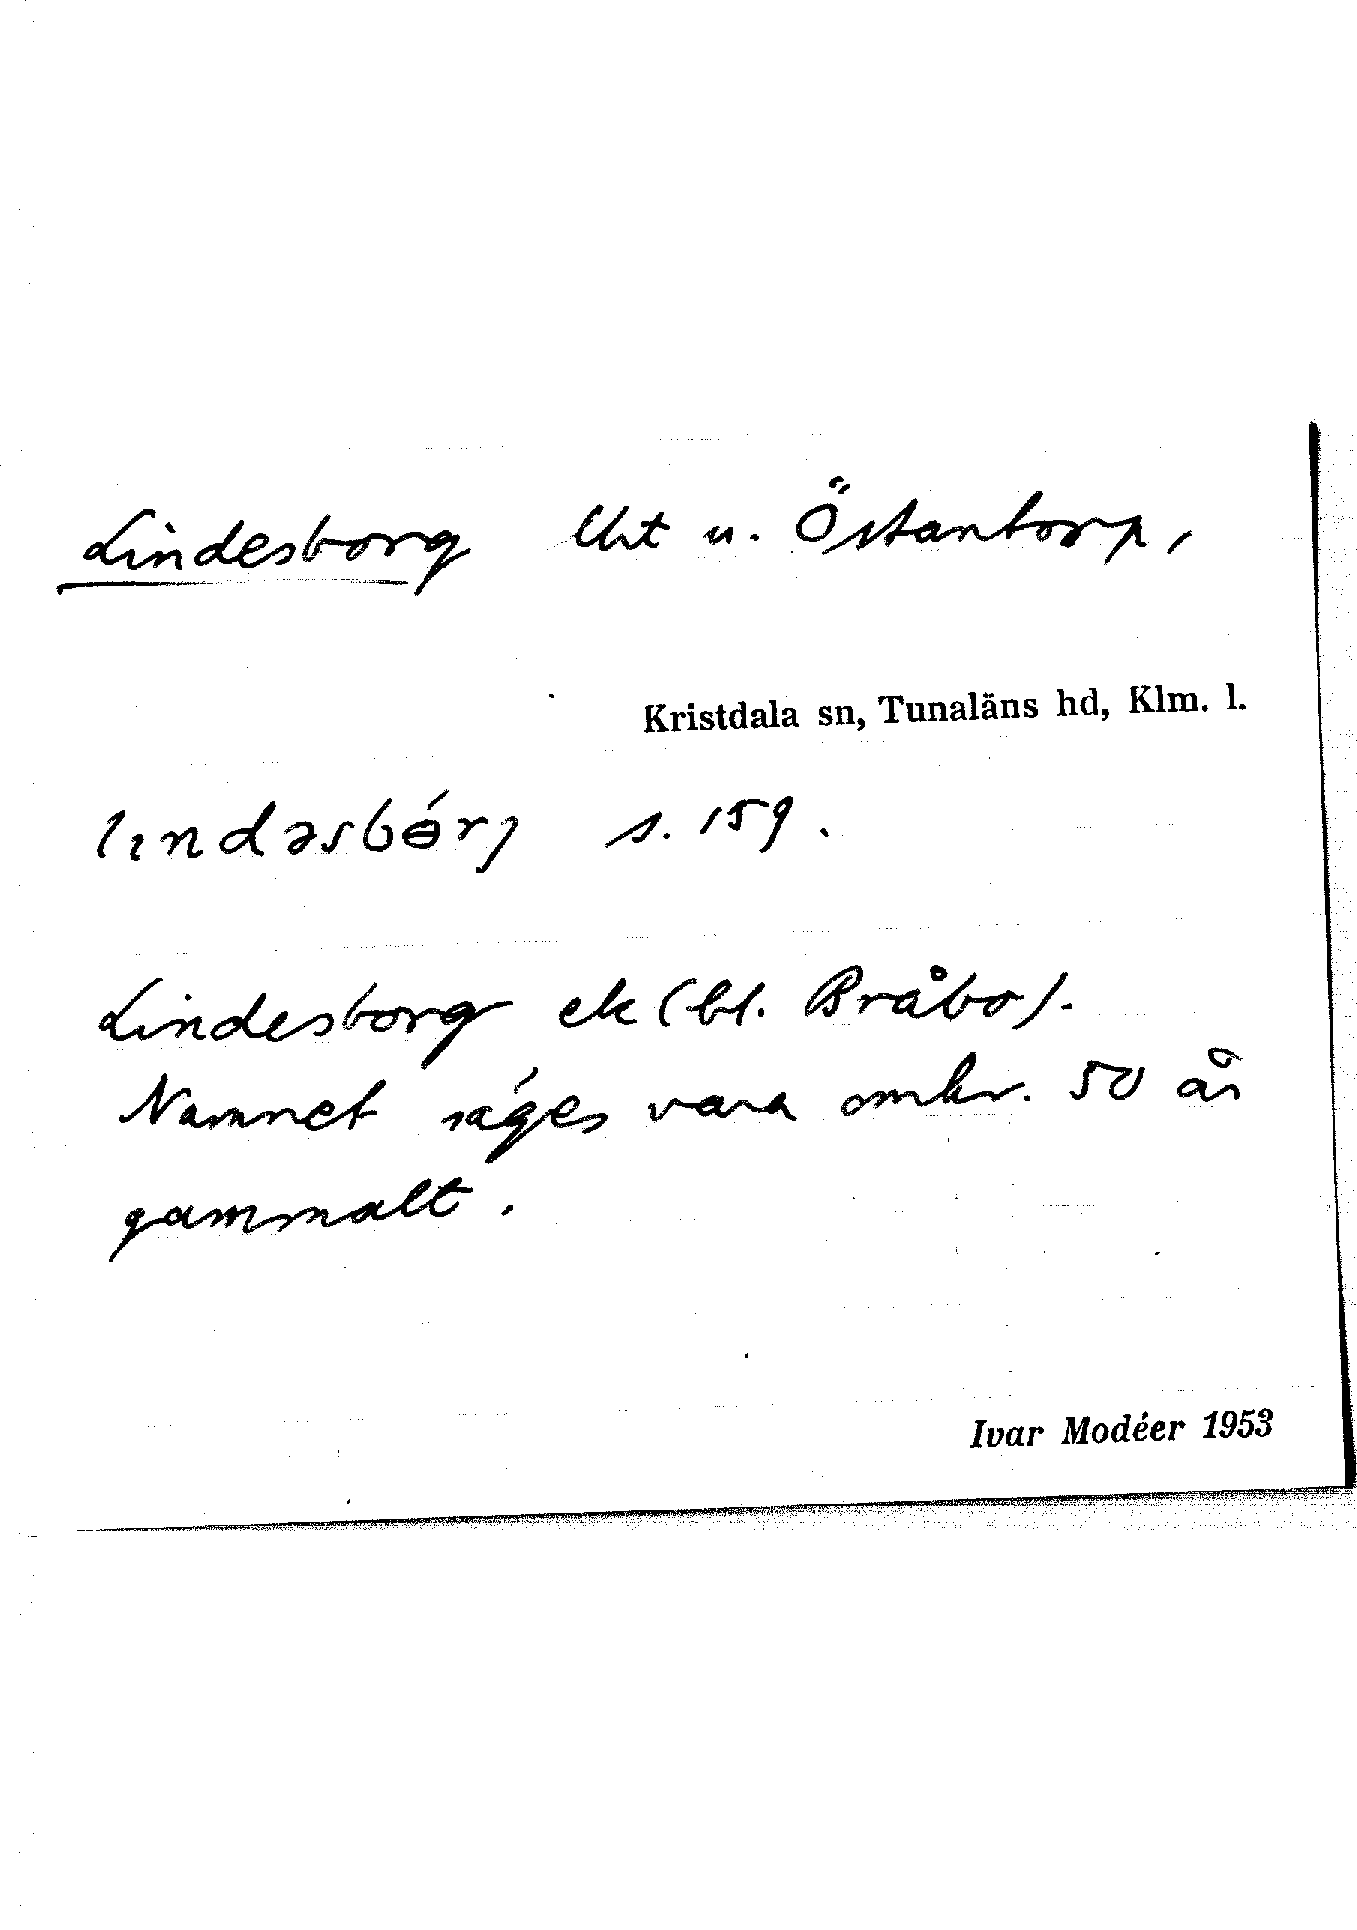 Lindesborg lht u. Östantorp,
Kristdala sn, Tunaläns hd, Klm. l.
lındəsbɵ́rj s. 159.
Lindesborg ek (bl. Bråbo).
Namnet säges vara omkr. 50 år
gammalt.
Ivar Modéer 1953